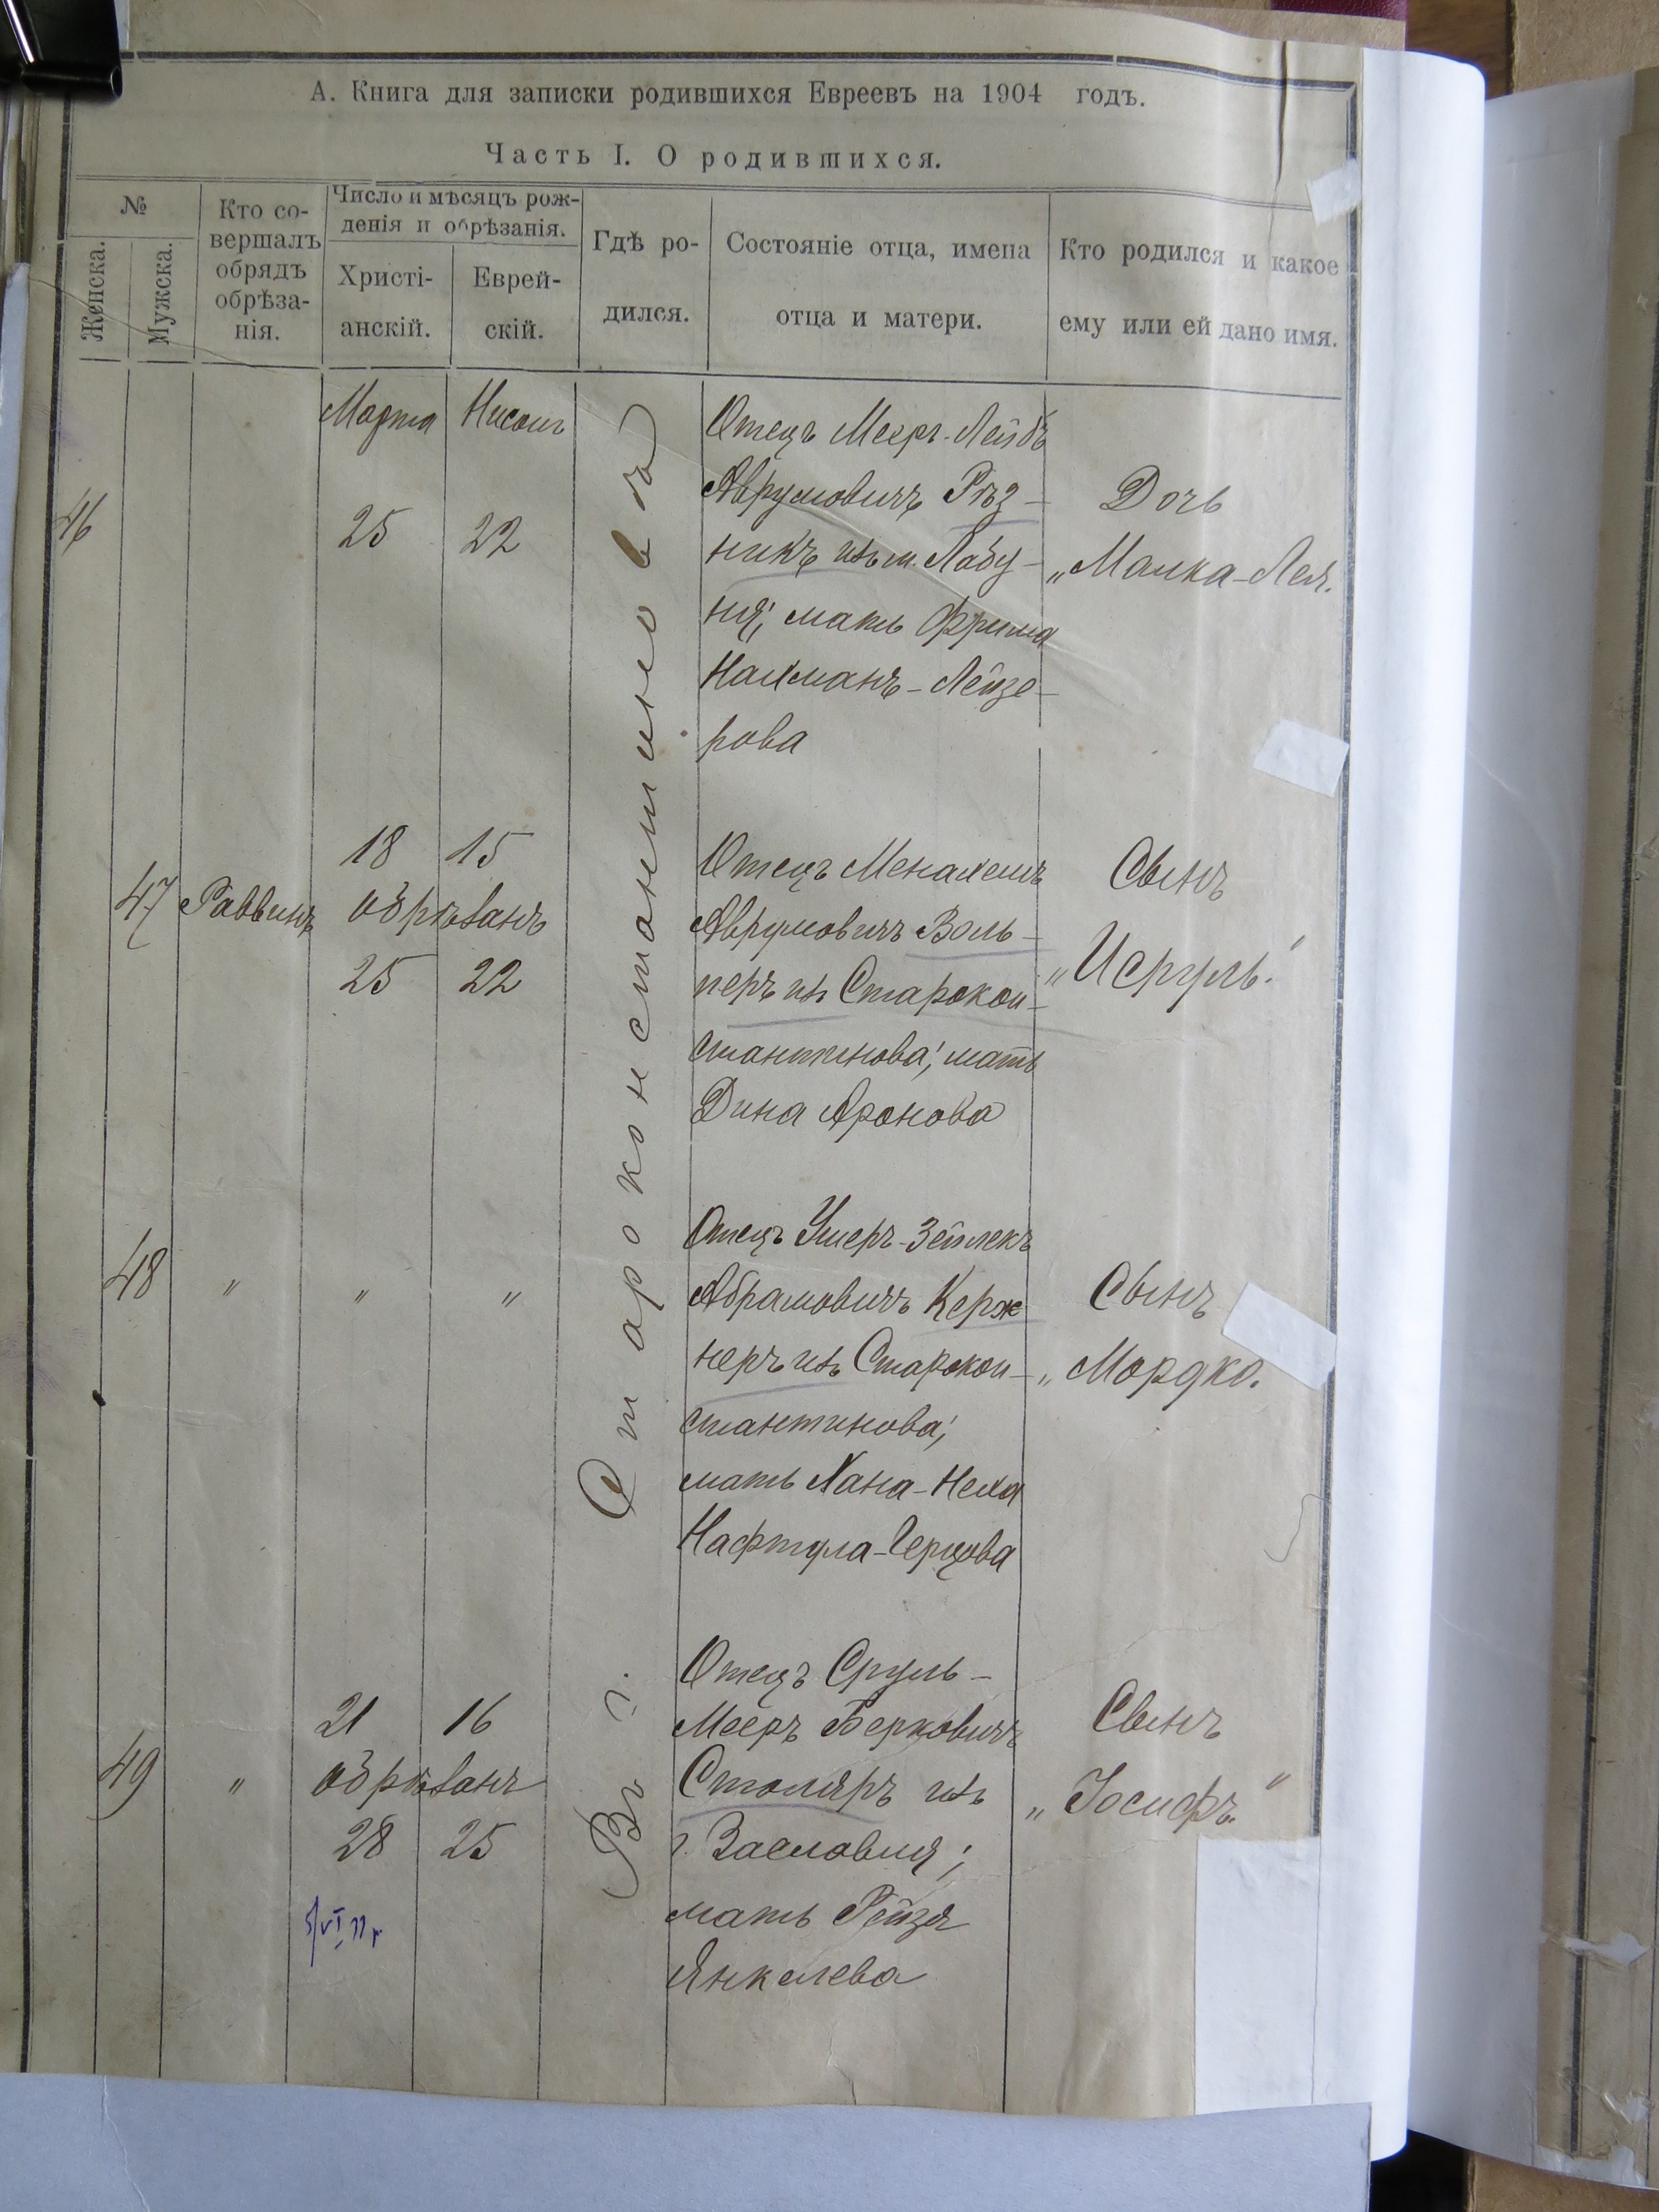 А. Книга для записки родившихся Евреевъ на 1904 годъ.
Часть I. О родившихся.
№
Женска.
Мужска.
Кто со-
вершалъ
обрядъ
обрѣза-
нія.
Число и мѣсяцъ рож-
денія и обрѣзанія.
Христі-
анскій.
Еврей-
скій.
Гдѣ ро-
дился.
Состояніе отца, имена
отца и матери.
Кто родился и какое
ему или ей дано имя.
Въ г. Староконстантиновѣ
46
Марта Нисонъ
25 22
Отецъ Мееръ-Лейбъ
Аврумовичъ Рѣз-
никъ изъ м. Лабу-
ня; мать Фрима
Нахманъ-Лейзе-
рова
Дочь
„Малка-Лея.
47 Раввинъ
18 15
обрѣзанъ
25 22
Отецъ Менахемъ
Аврумовичъ Воль-
перъ изъ Старокон-
стантинова; мать
Дина Аронова
Сынъ
„Исруль."
48 " " "
Отецъ Ушеръ-Зейлекъ
Абрамовичъ Керж
неръ изъ Старокон-
стантинова;
мать Хана-Неха
Нафтула-Герцова
Сынъ
„Мордко.
49 "
21 16
обрѣзанъ
28 25
Отецъ Сруль-
Мееръ Берковичъ
Столяръ изъ
г. Заславля;
мать Рейзя
Янкелева
Сынъ
„Іосифъ."